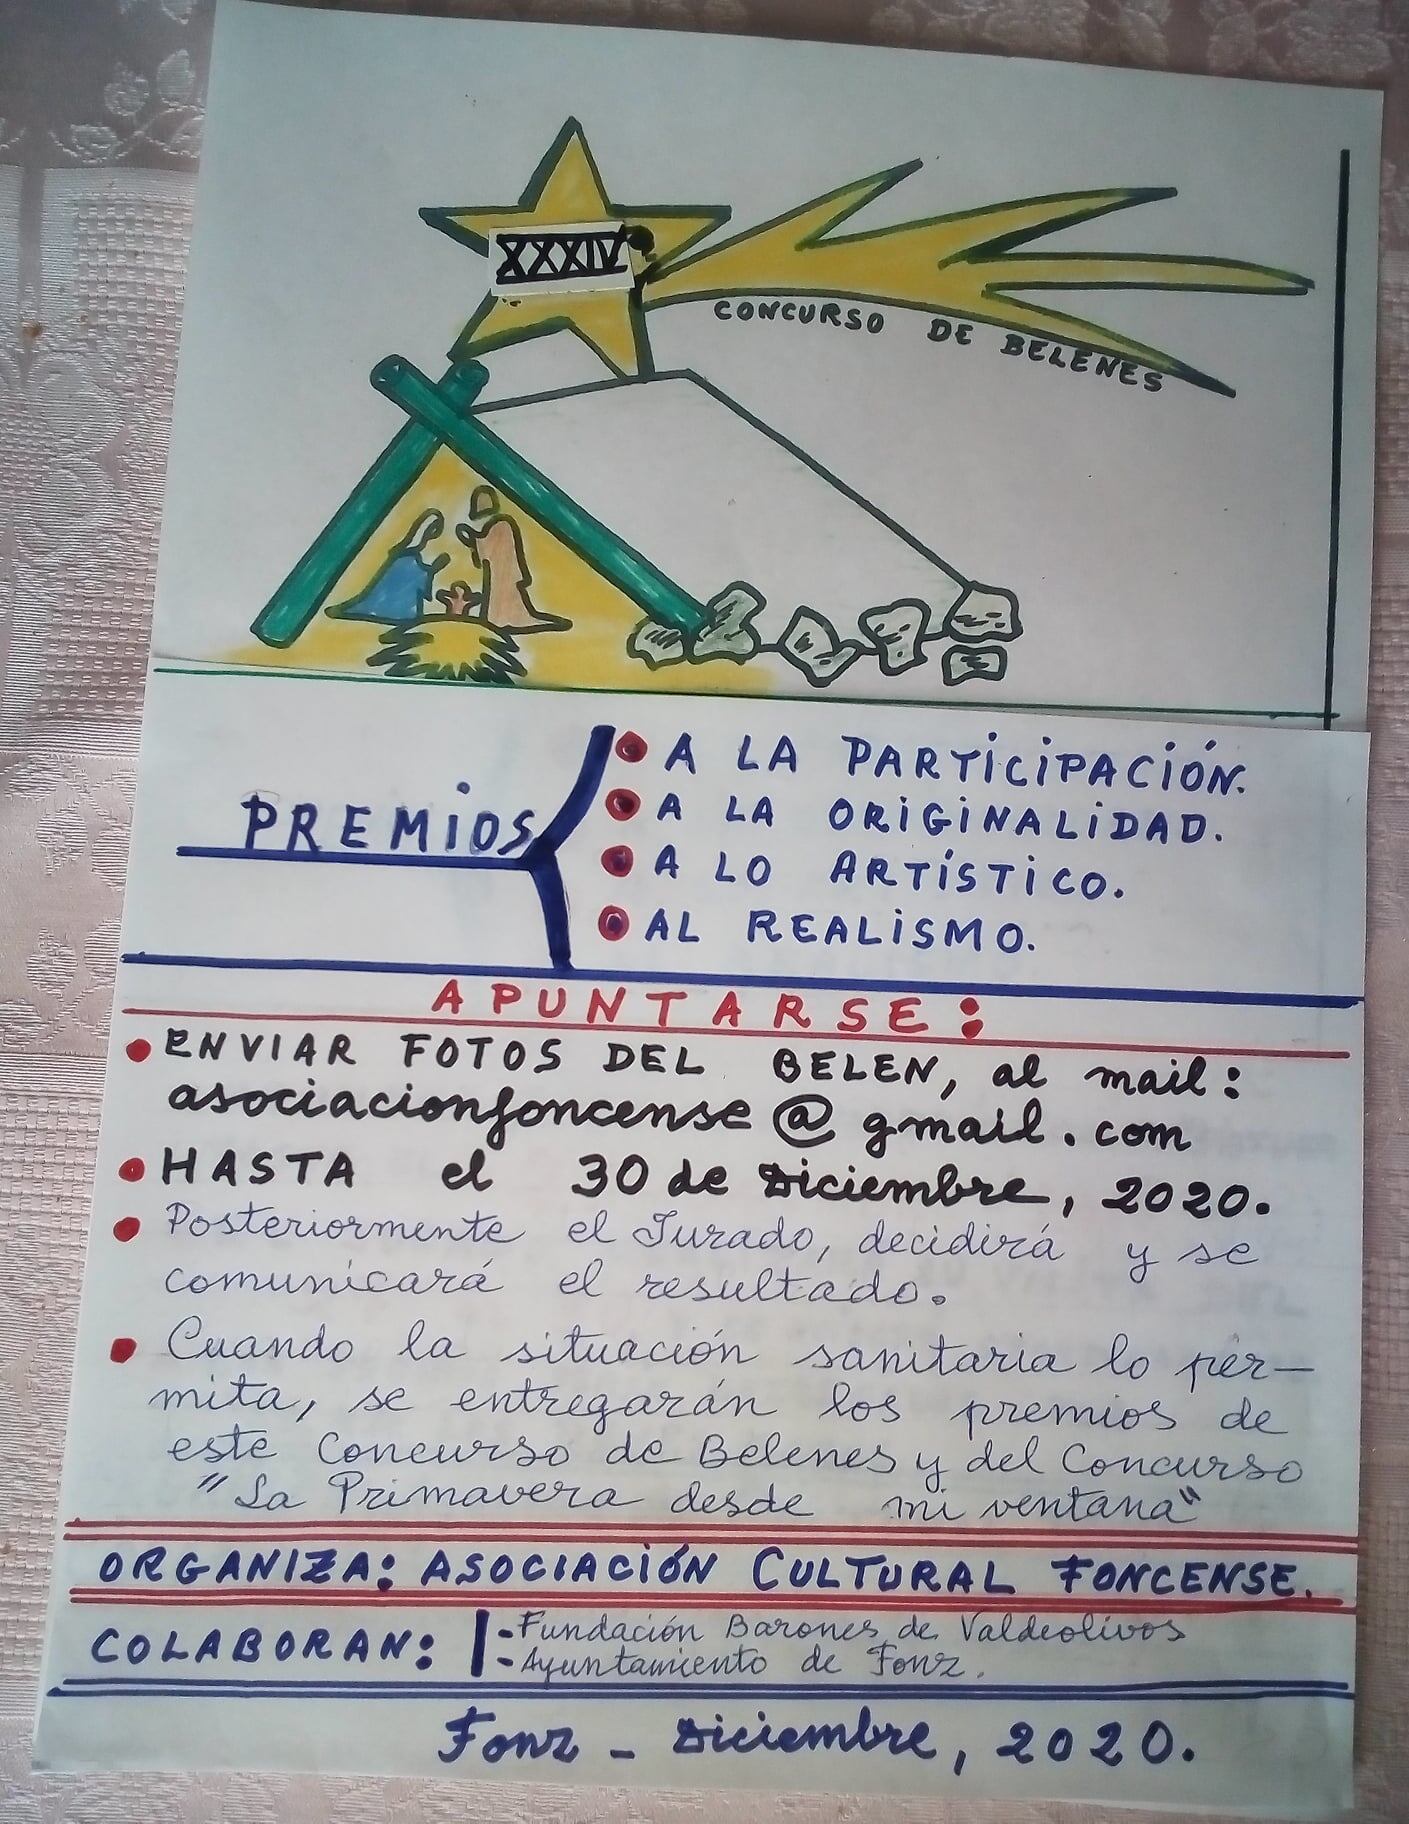 XXXIV
CONCURSO DE BELENES
PREMIOS
A LA PARTICIPACIÓN.
A LA ORIGINALIDAD.
A LO ARTÍSTICO.
AL REALISMO.
APUNTARSE:
ENVIAR FOTOS DEL BELEN, al mail:
asociacionfoncense@gmail.com
HASTA el 30 de Diciembre, 2020.
Posteriormente el Jurado, decidirá y se
comunicará el resultado.
Cuando la situación sanitaria lo per-
mita, se entregarán los premios de
este Concurso de Belenes y del Concurso
"La Primavera desde mi ventana"
ORGANIZA: ASOCIACIÓN CULTURAL FONCENSE.
COLABORAN: - Fundación Barones de Valdeolivos
- Ayuntamiento de Fonz.
Fonz - Diciembre, 2020.